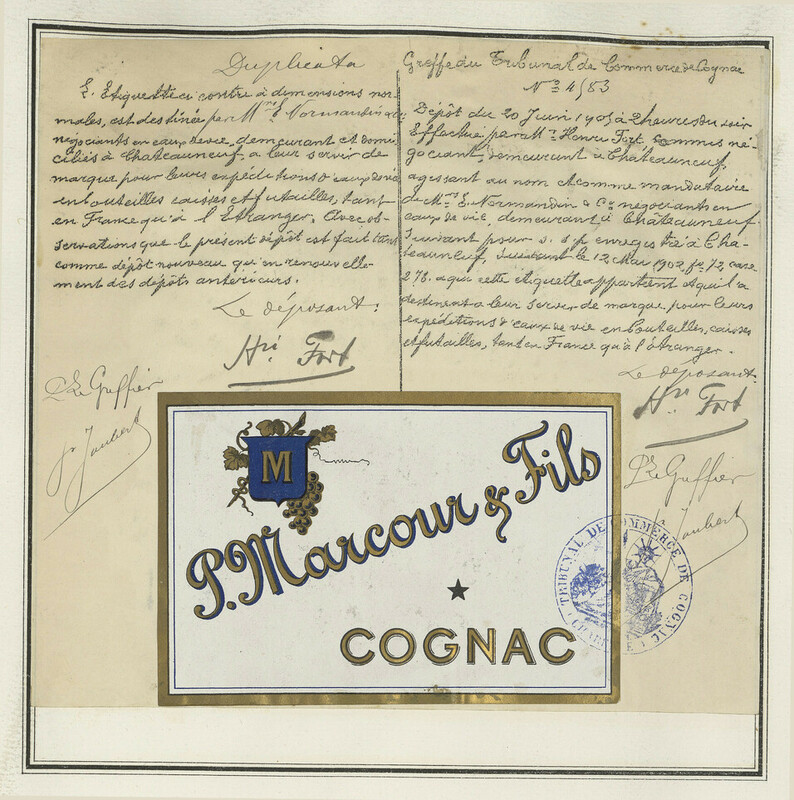 Duplicata
L'Etiquette ci contre à dimensions nor-
males, est destinée par Mrs E. Normandin & Cie
négociants en eaux de vie, demeurant et domi-
ciliés à Châteauneuf, a leur servir de
marque pour leurs expéditions d'eaux de vie
en bouteilles caisses et futailles, tant
en France qu'à l'Etranger. Avec ob-
servations que le présent dépôt est fait tant
comme dépôt nouveau qu'en renouvelle-
ment des dépôts antérieurs.
Le déposant:
Hri Fort
Le Greffier
Jaubert
Greffe du Tribunal de Commerce de Cognac
No 4183
Dépôt du 20 Juin 1905 à 2 heures du soir
Effectué par Mr Henri Fort, commis né-
gociant, demeurant à Châteauneuf,
agissant au nom et comme mandataire
de Mrs E. Normandin & Cie négociants en
eaux de vie, demeurant à Châteauneuf
Suivant pour s. s. p. enregistré à Châ-
teauneuf, le 12 Mai 1902 fo 72 case
278. a qui cette étiquette appartient et qui l'a
destinent a leur servir de marque pour leurs
expéditions d'eaux de vie en bouteilles, caisses
et futailles, tant en France qu'à l'étranger.
Le déposant:
Hri Fort
Le Greffier
Jaubert
M
P. Marcour & Fils
COGNAC
TRIBUNAL DE COMMERCE DE COGNAC